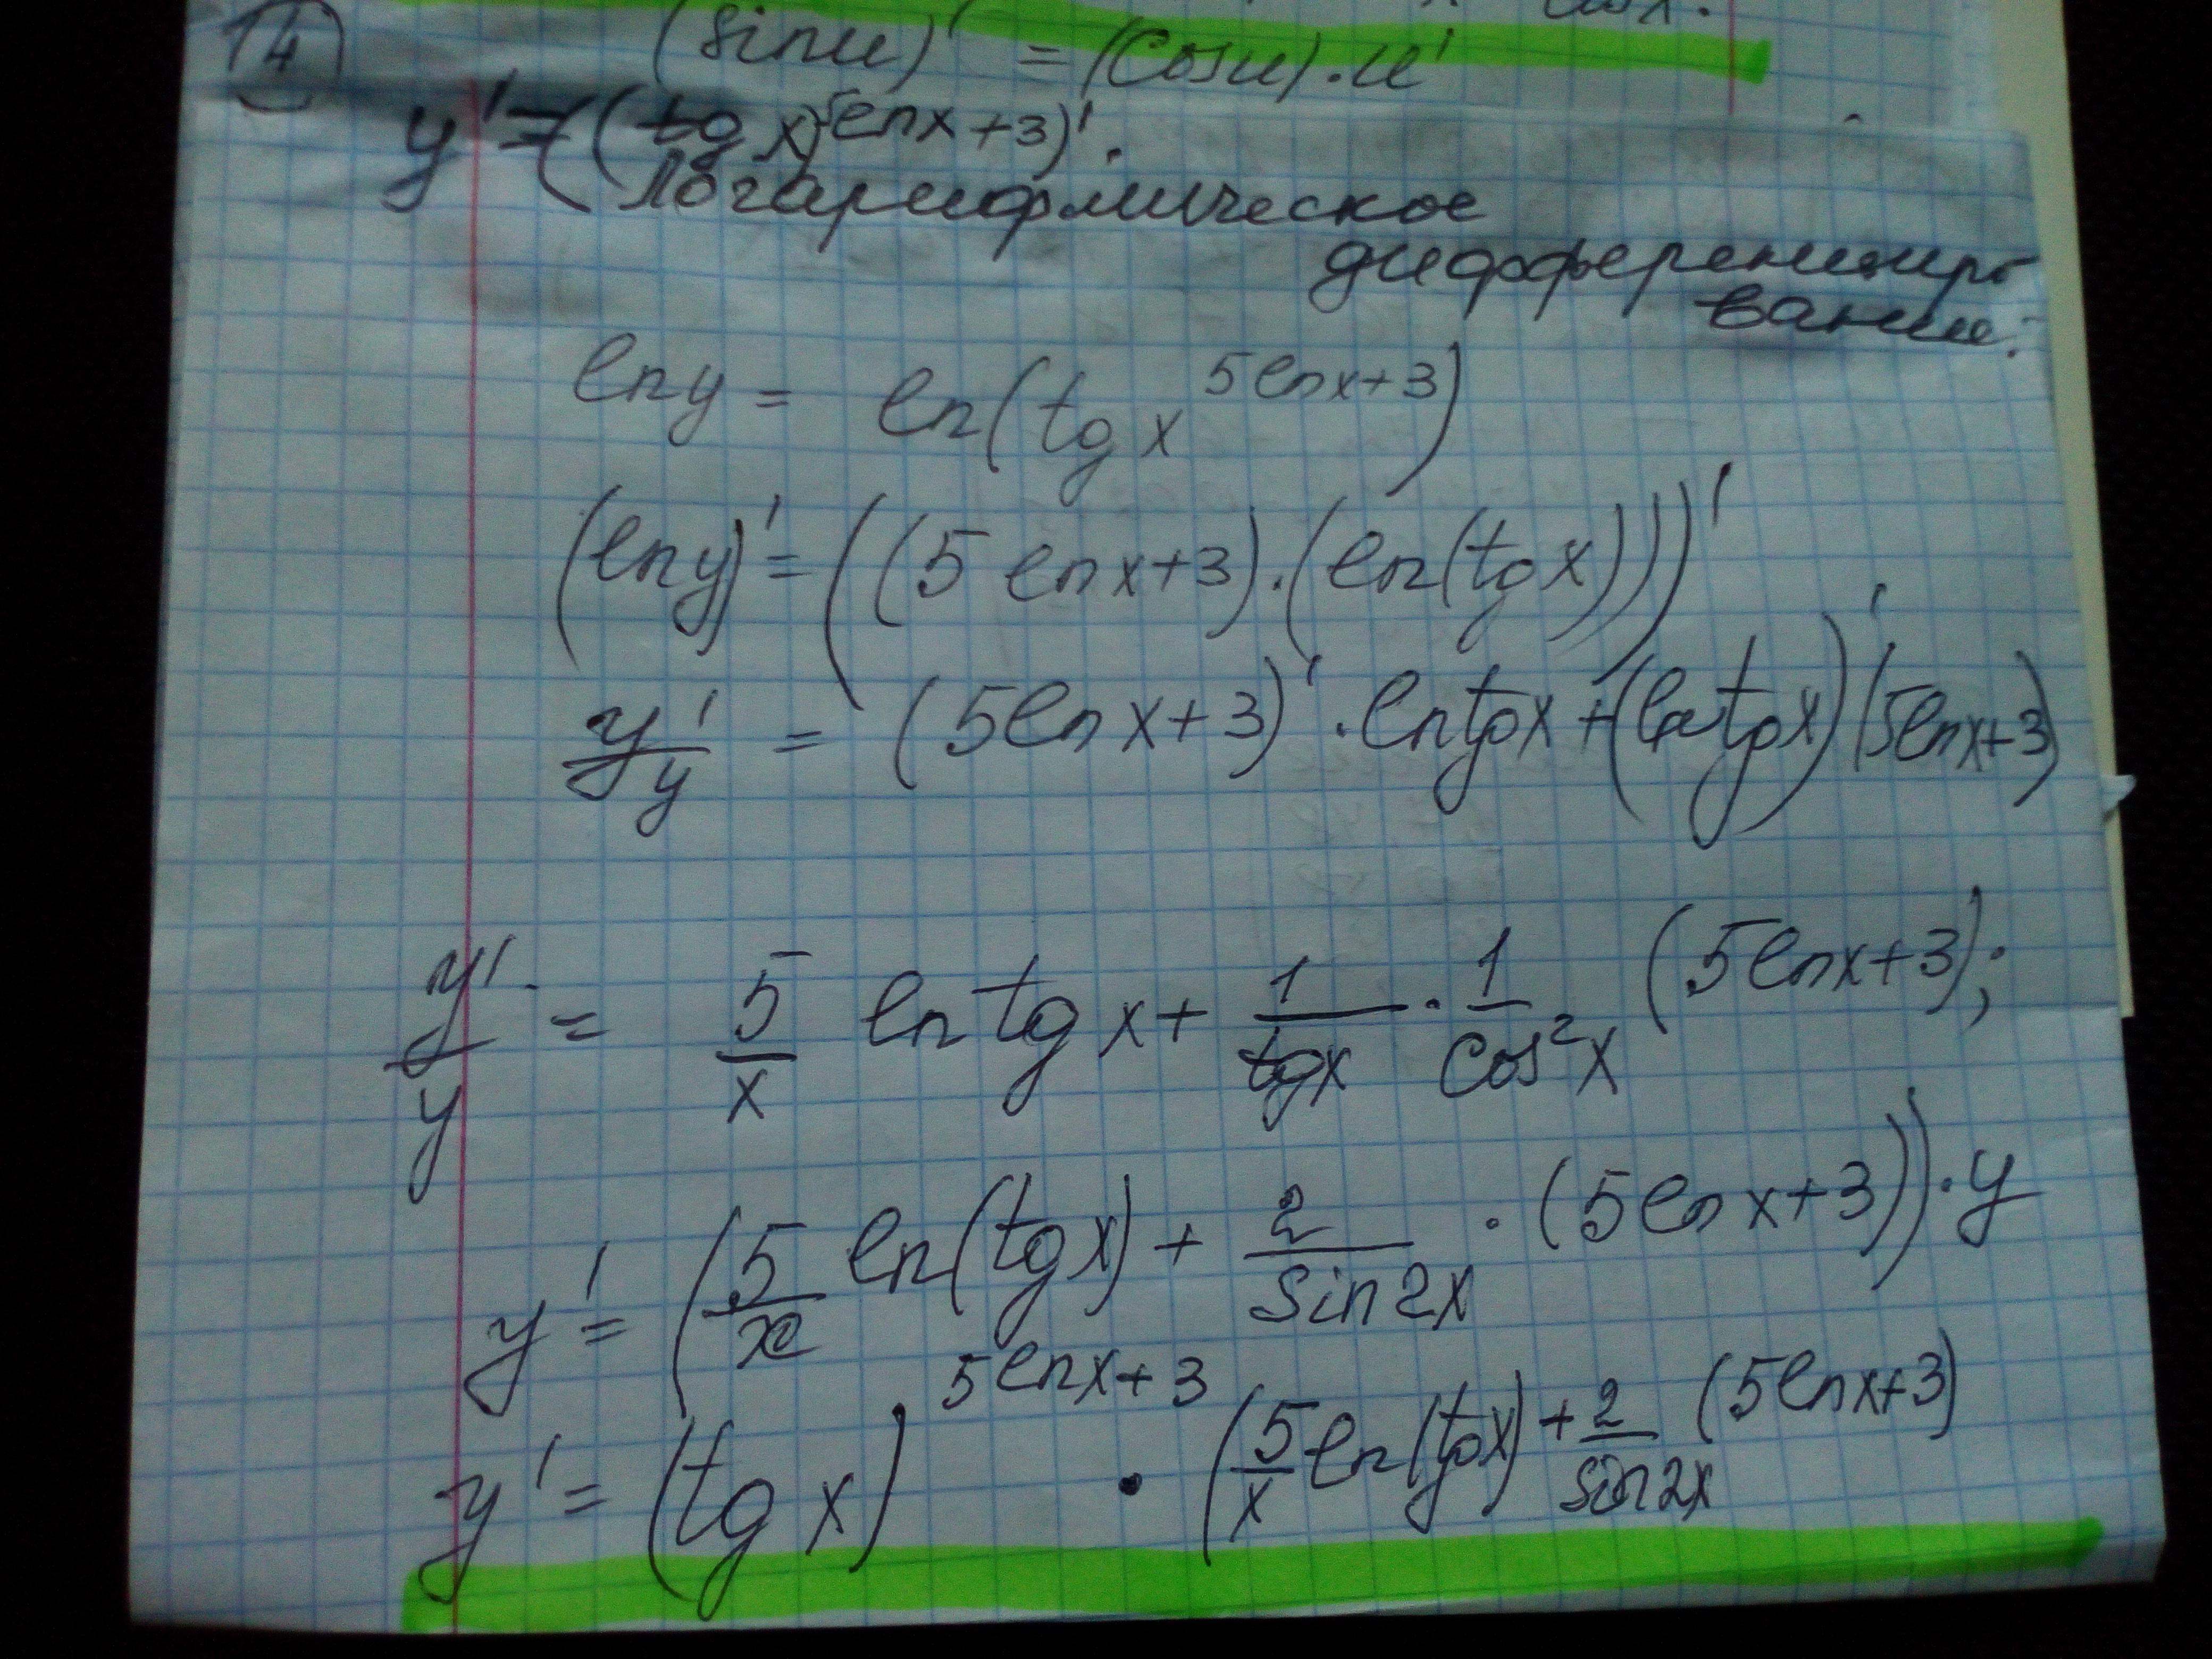 cos x.
(sin u)' = (cos u) · u'
14
y' = ((tg x)^{5lnx+3})'.
Логарифмическое
дифференциро
вание:
ln y = ln(tg x^{5lnx+3})
(ln y)' = ((5 ln x+3)·(ln(tg x)))'
y'/y = (5ln x+3)' · ln tg x + (ln tg x)' (5ln x+3)
y'/y = 5/x ln tg x + 1/tgx · 1/cos²x (5ln x+3);
y' = (5/x ln(tg x) + 2/sin 2x · (5ln x+3)) · y
y' = (tg x)^{5lnx+3} · (5/x ln(tg x) + 2/sin 2x (5ln x+3)